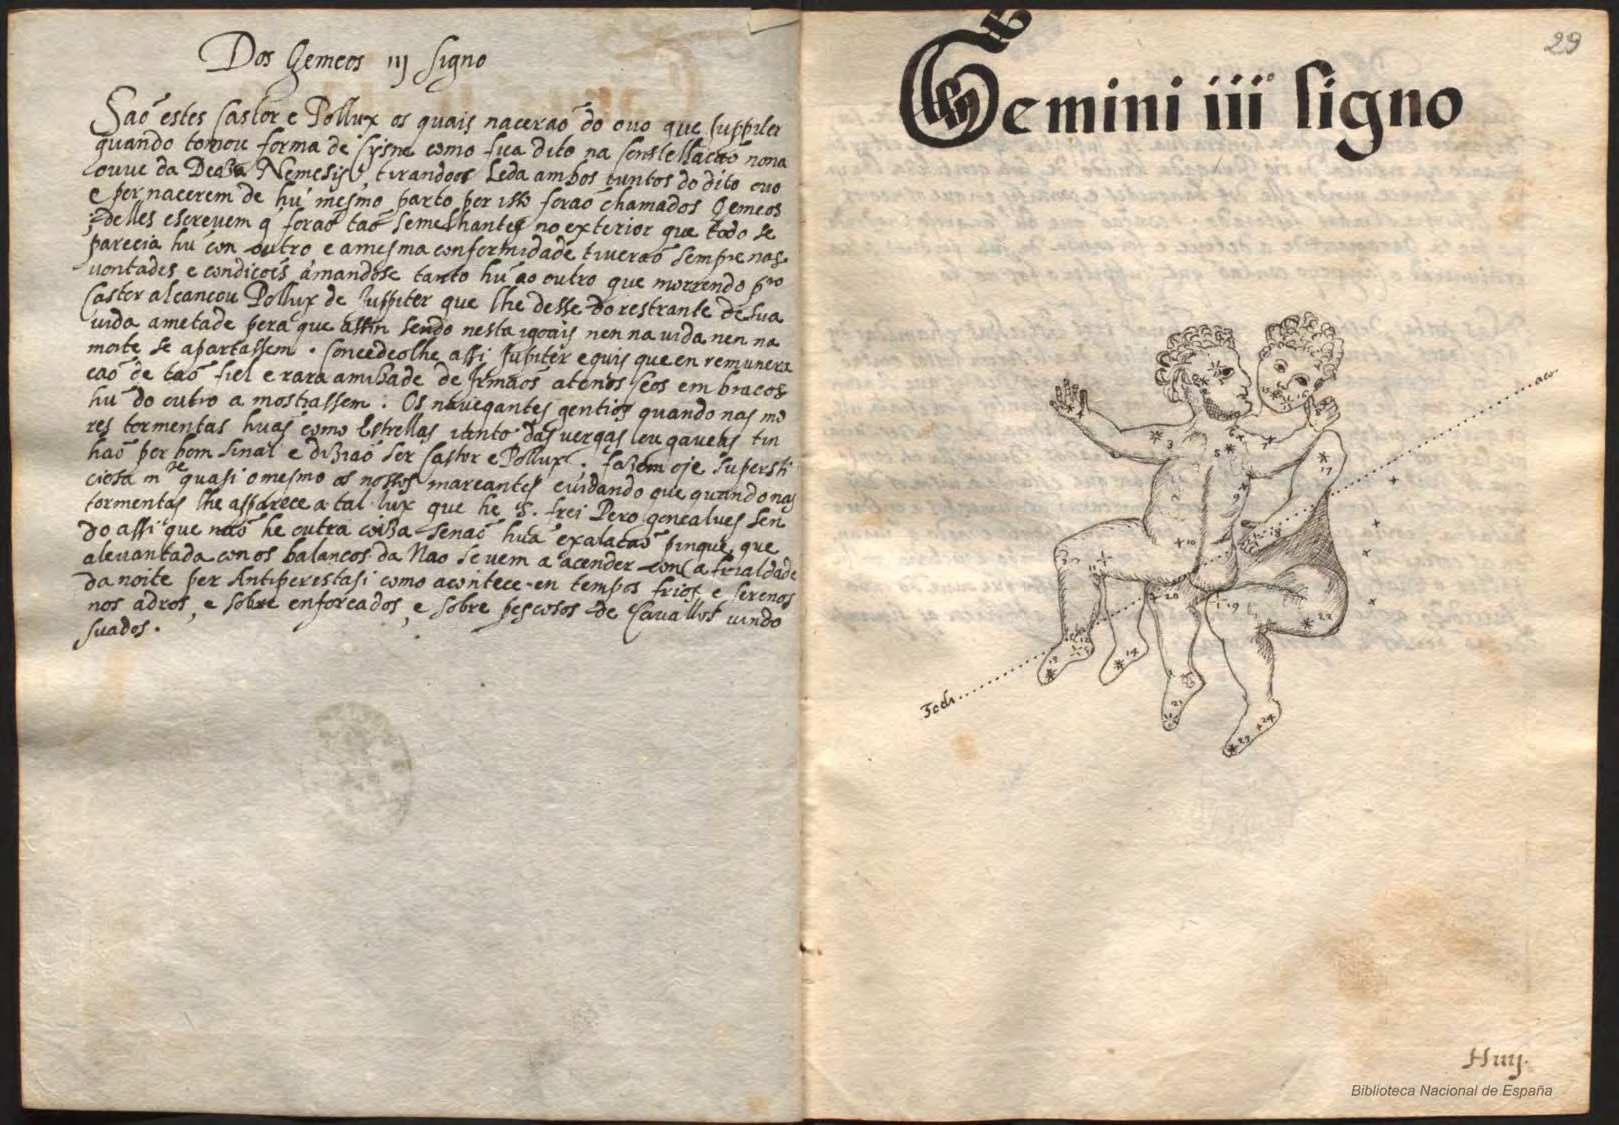 Dos Gemeos iij signo
Saõ estes Castor e Pollux os quais naceraõ do ouo que Iuppiter
quando tomou forma de Cysne como fica dito na Constellacaõ nona
ouue da Nemesis, tirandoos Leda ambos juntos do dito ouo
e por nacerem de hũ mesmo parto por isto foraõ chamados Gemeos
delles escreuem q̃ foraõ taõ semelhantes no exterior que todo se
parecia hũ con outro e a mesma conformidade tiueraõ sempre nas
uontades e condiçoẽs ámandose tanto hũ ao outro que morrendo pro
Castor alcancou Pollux de Iuppiter que lhe desse do restante de sua
uida ametade pera que assin sendo nesta igoais nen na uida nen na
morte se apartassem. Concedeolhe assi Iupiter e quis que en remunera
caõ de taõ fiel e rara amizade de Irmaõs atenos seos em bracos
hũ do outro a mostrassem. Os nauegantes gentios quando nas mo
res tormentas huãs como Estrellas iunto das uergas ou gaueas tin
haõ por bom sinal e diziaõ ser Castor e Pollux. fazem oje supersti
ciosa mte quasi o mesmo os nossos mareantes cuidando que quando nas
tormentas lhe apparece a tal lux que he S. frei Pero goncalues sen
do assi que naõ he outra coiza senaõ huã exalacaõ pinque, que
aleuantada con os balancos da Nao se uem a acender con a frialdade
da noite per Antiperestasi como acontece en tempos frios e serenos
nos adros, e sobre enforcados, e sobre pescosos de Cauallos uindo
suados.
29
Gemini iii signo
3
5
6
7
9
10
17
12
13
14
20
19
22
21
23
24
Zodi
aco
Hiiij.
Biblioteca Nacional de España